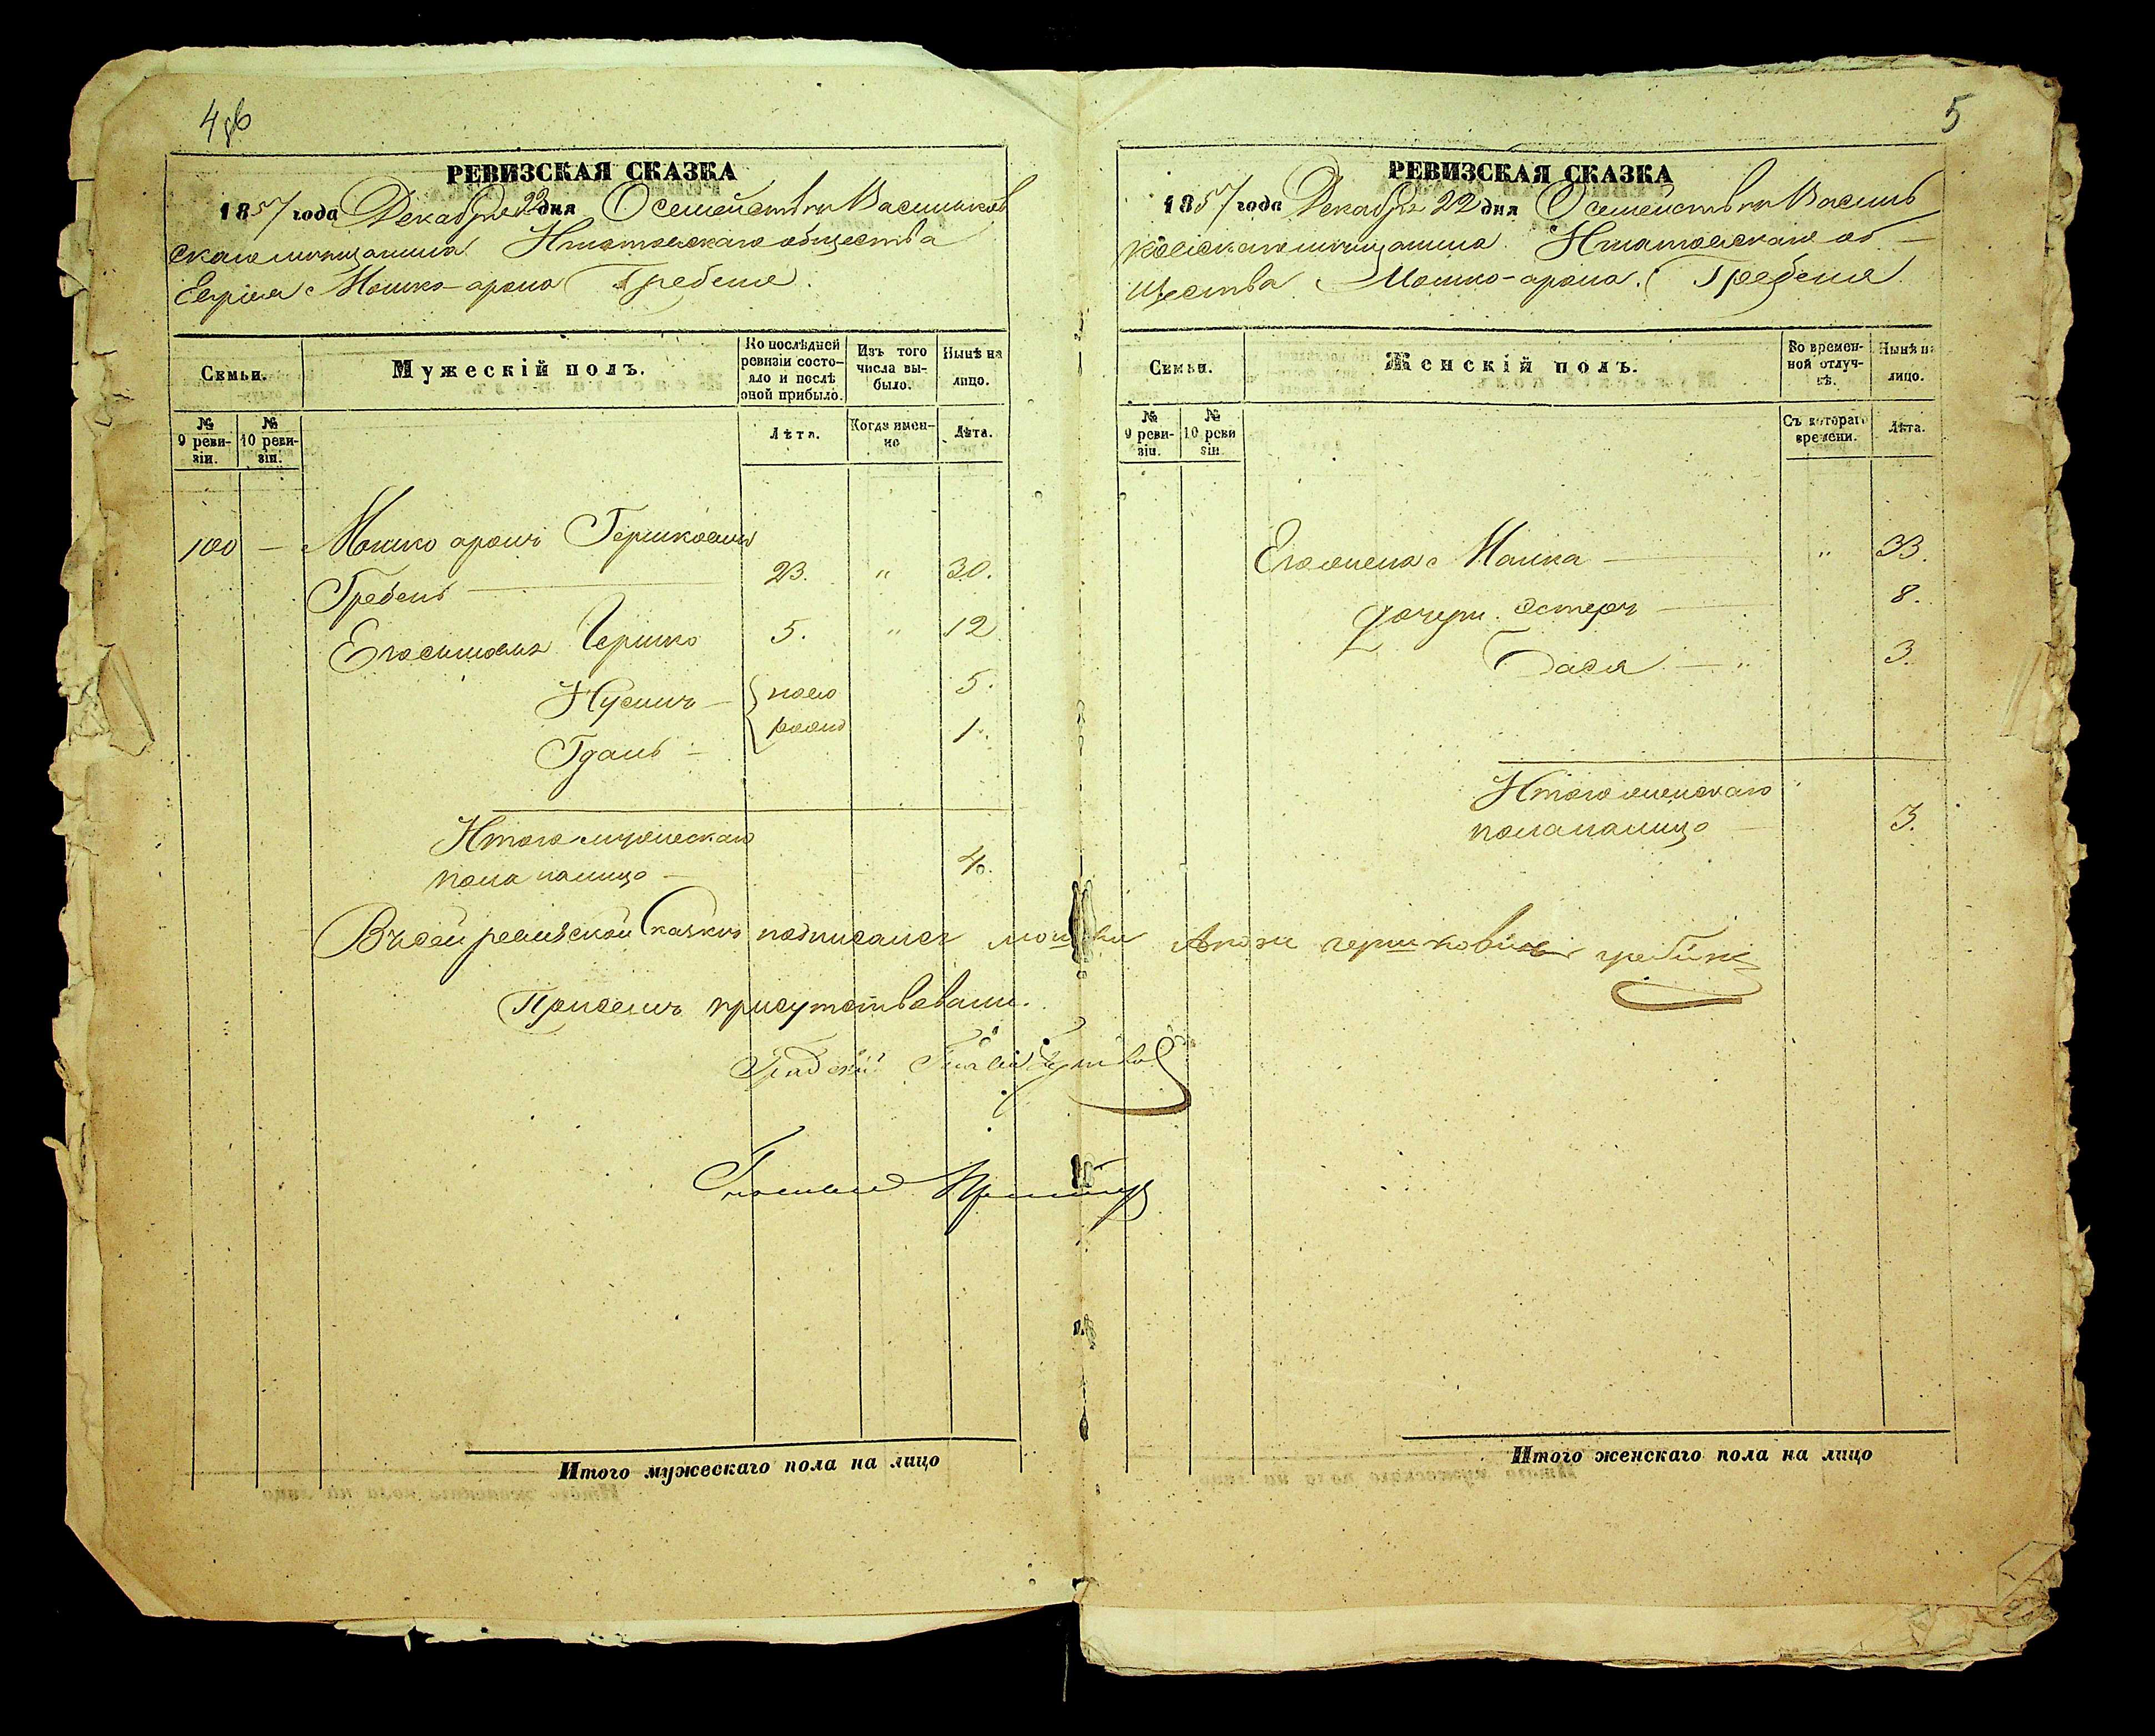 4об
РЕВИЗСКАЯ СКАЗКА
1857 года Декабря 22 дня О семействѣ Васильков
скаго мѣщанина Игнатовскаго общества
Еврея Мошко-арона Гребеня.
Семьи.
Мужескій полъ.
По послѣдней
ревизіи состо-
яло и послѣ
оной прибыло.
Изъ того
числа вы-
было.
Нынѣ на
лицо.
№
9 реви-
зіи.
№
10 реви-
зіи.
Лѣта.
Когда имен-
но
Лѣта.
100 — Мошко аронъ Гершковичъ
Гребень — 23. " 30.
Его сыновья Гершко 5. " 12
Нусинъ — ново 5.
рожд
Гдань — 1.
Итого мужескаго
пола налицо — 4.
Къ сей ревизской сказкѣ подписался мошко Арон гершкович гребинь
При семъ присутствовали.
Градский Глава
Гласный
Итого мужескаго пола на лицо
5
РЕВИЗСКАЯ СКАЗКА
1857 года Декабря 22 дня О семействѣ Василь
ковскаго мѣщанина Игнатовскаго об —
щества Мошко-арона Гребеня
Семьи.
Женскій полъ.
Во времен-
ной отлуч-
кѣ.
Нынѣ на
лицо.
№
9 реви-
зіи.
№
10 реви
зіи
Съ котораго
времени.
Лѣта.
Его жена Малка — " 33.
дочери Эстеръ — 8.
Бася — " 3.
Итого женскаго
пола налицо — 3.
Итого женскаго пола на лицо